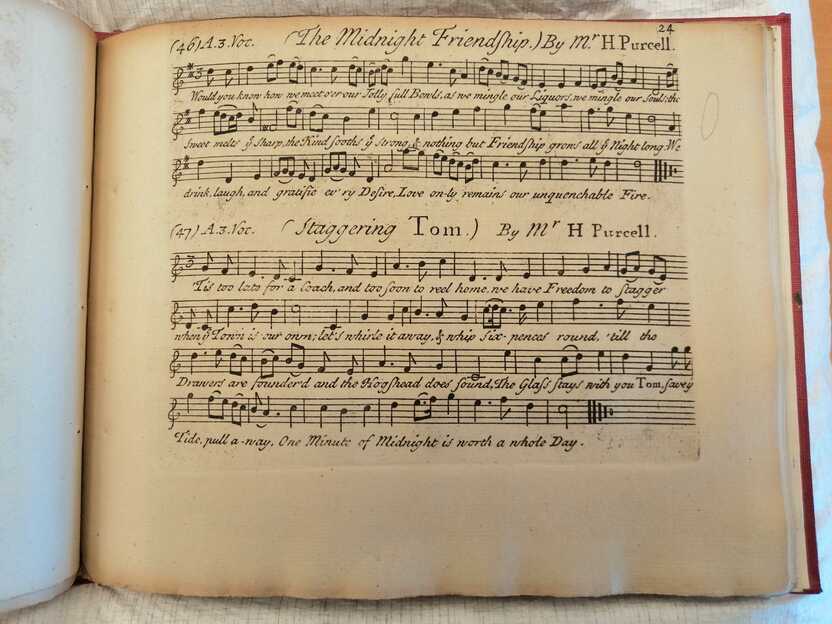 24
(46) A. 3. Voc. (The Midnight Friendship.) By Mr. H. Purcell.
Would you know how we meet o'er our Jolly full Bowls, as we mingle our Liquors, we mingle our Souls; the
Sweet melts ye Sharp, the Kind sooths ye Strong, & nothing but Friendship grows all ye Night long. We
drink, laugh, and gratifie ev'ry Desire, Love on-ly remains our unquenchable Fire.
(47) A. 3. Voc. (Staggering Tom.) By Mr H Purcell.
'Tis too late for a Coach, and too soon to reel home, we have Freedom to stagger
when ye Town is our own; let's whirle it away, & whip six-pences round, 'till the
Drawers are founder'd and the Hogshead does sound, The Glass stays with you Tom, savey
Tide, pull a-way, One Minute of Midnight is worth a whole Day.